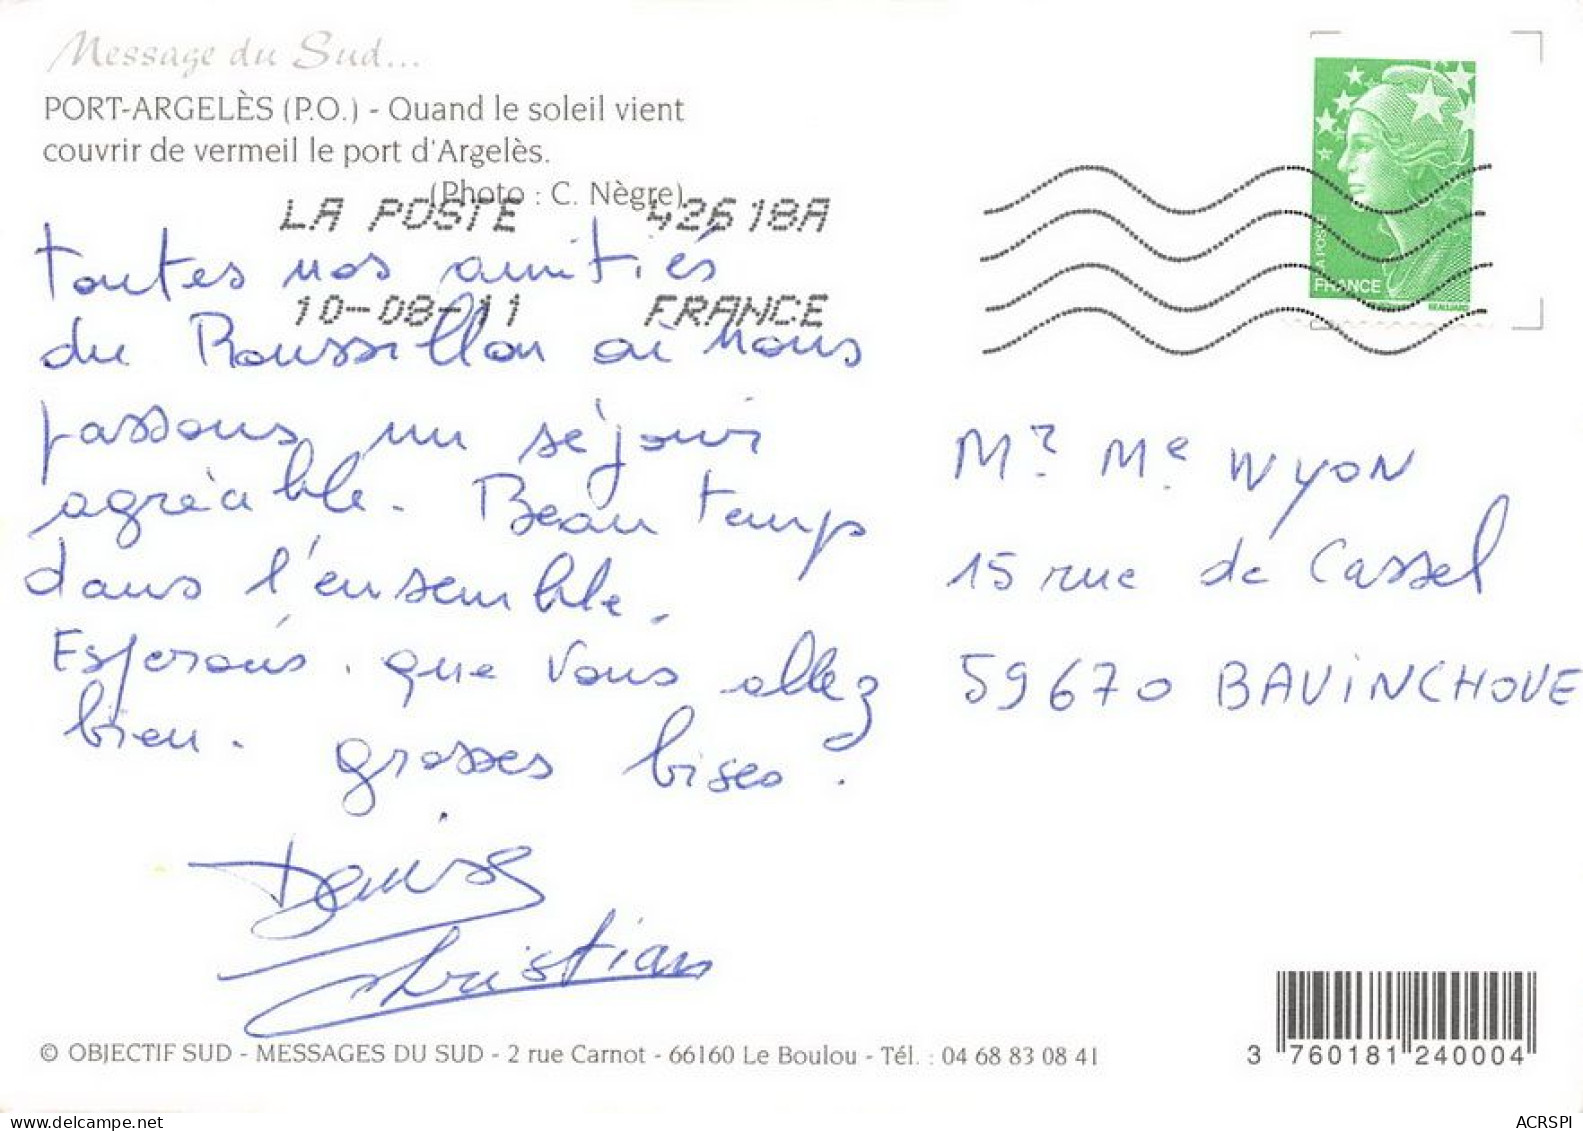 Message du Sud...
PORT-ARGELÈS (P.O.) - Quand le soleil vient
couvrir de vermeil le port d'Argelès.
(Photo : C. Nègre)
LA POSTE 42618A
10-08-11 FRANCE
LA POSTE
FRANCE
BEAUJARD
toutes nos amitiés
du Roussillon où nous
passons un séjour
agréable. Beau temps
dans l'ensemble.
Espérons que vous allez
bien. grosses bises.
Denise
Christian
Mr Me WYON
15 rue de Cassel
59670 BAVINCHOVE
© OBJECTIF SUD - MESSAGES DU SUD - 2 rue Carnot - 66160 Le Boulou - Tél. : 04 68 83 08 41
3 760181 240004
ACRSPI